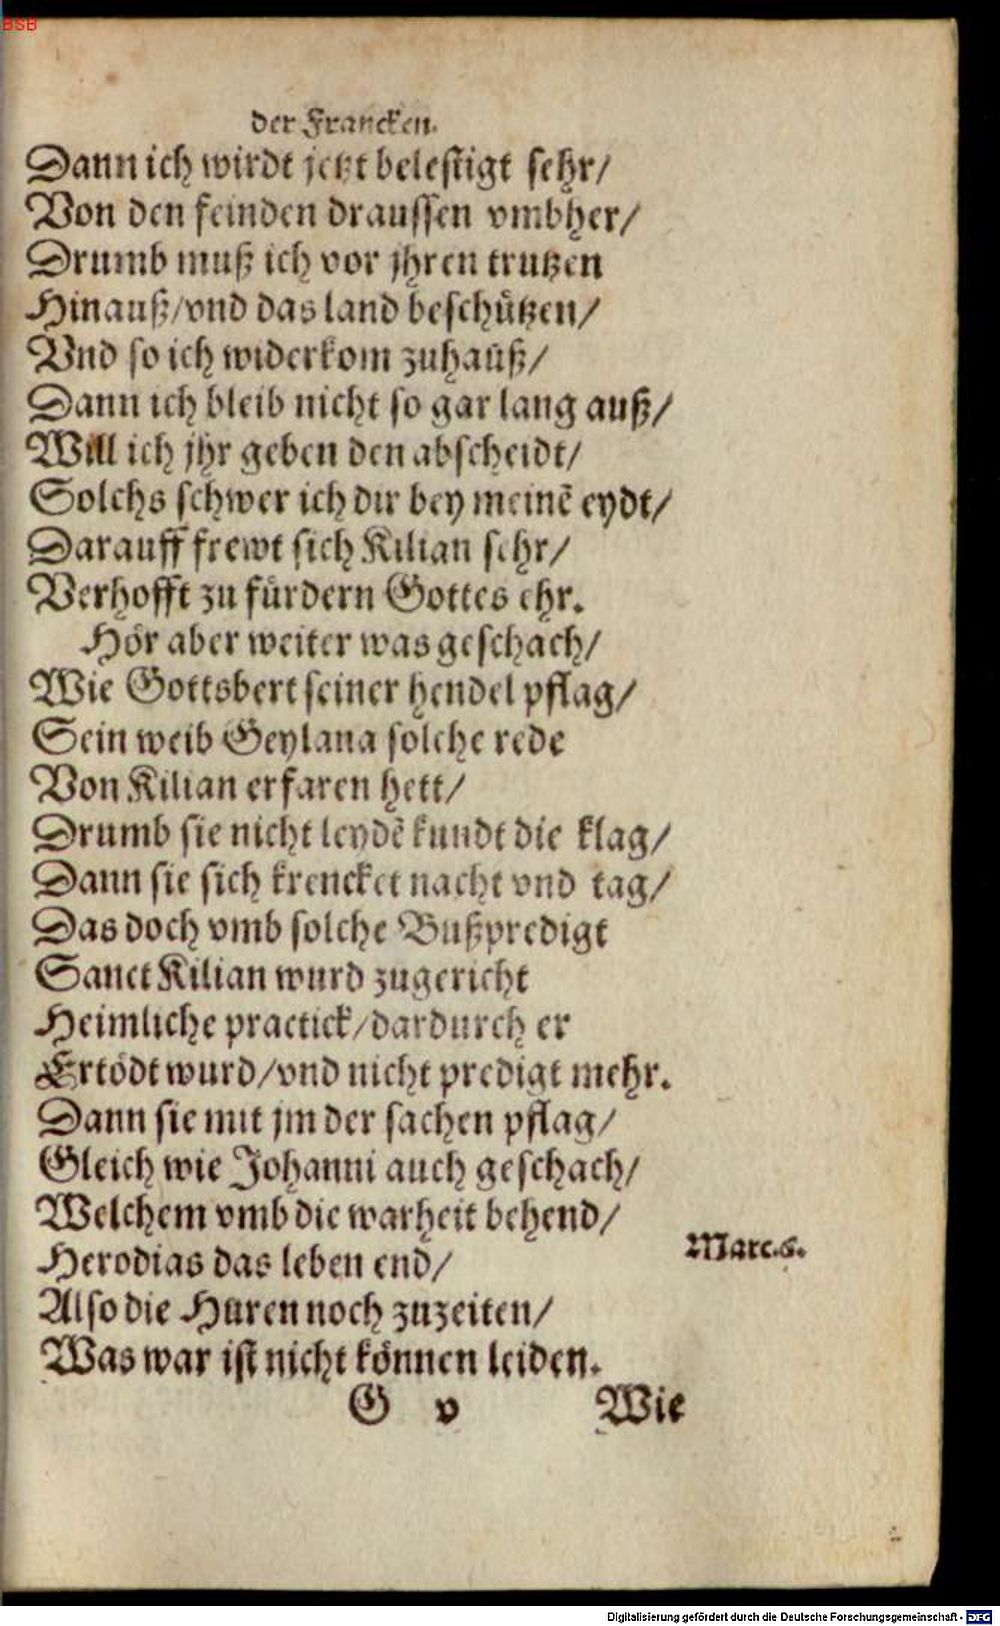 BSB
der Francken.
Dann ich wirdt jetzt belestigt sehr/
Von den feinden draussen vmbher/
Drumb muß ich vor jhren trutzen
Hinauß/vnd das land beschützen/
Vnd so ich widerkom zuhauß/
Dann ich bleib nicht so gar lang auß/
Will ich jhr geben den abscheidt/
Solchs schwer ich dir bey meinē eydt/
Darauff frewt sich Kilian sehr/
Verhofft zu fürdern Gottes ehr.
Hör aber weiter was geschach/
Wie Gottsbert seiner hendel pflag/
Sein weib Geylana solche rede
Von Kilian erfaren hett/
Drumb sie nicht leydē kundt die klag/
Dann sie sich krencket nacht vnd tag/
Das doch vmb solche Bußpredigt
Sanct Kilian wurd zugericht
Heimliche practick/dardurch er
Ertödt wurd/vnd nicht predigt mehr.
Dann sie mit jm der sachen pflag/
Gleich wie Johanni auch geschach/
Welchem vmb die warheit behend/
Marc.6.
Herodias das leben end/
Also die Huren noch zuzeiten/
Was war ist nicht können leiden.
G v Wie
Digitalisierung gefördert durch die Deutsche Forschungsgemeinschaft - DFG